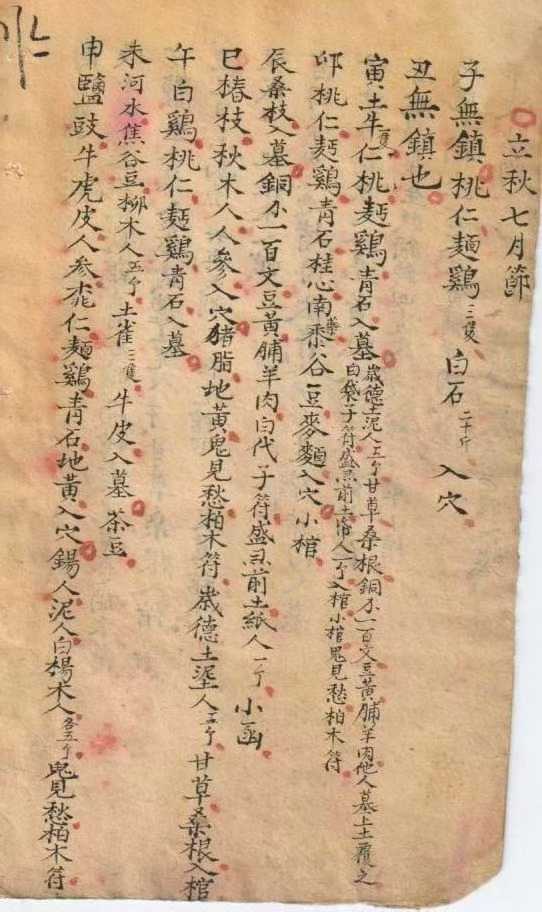 立秋七月節
子無鎮桃仁麵鷄三隻白石二十斤入穴
丑無鎮也
寅土牛一隻仁桃麪鷄青石入墓歲德土泥人三个甘草桑根銅不一百文豆黃脯羊肉他人墓上土覆之
白袋子符盛前土人一个入棺小棺鬼見愁柏木符
卯桃仁麪鷄青石桂心南黍谷豆麥麵入穴小棺
辰桑枝入墓銅不一百文豆黃脯羊肉白代子符盛前土紙人一个小函
巳椿枝秋木人人參入穴猪脂地黃鬼見愁柏木符歲德土埿人三个甘草桑根入棺
午白鷄桃仁麪鷄青石入墓
未河水焦谷豆柳木人五个土雀三隻牛皮入墓茶豆
申鹽豉牛虎皮人参桃仁麵鷄青石地黃入穴錫人泥人白楊木人各五个鬼見愁柏木符